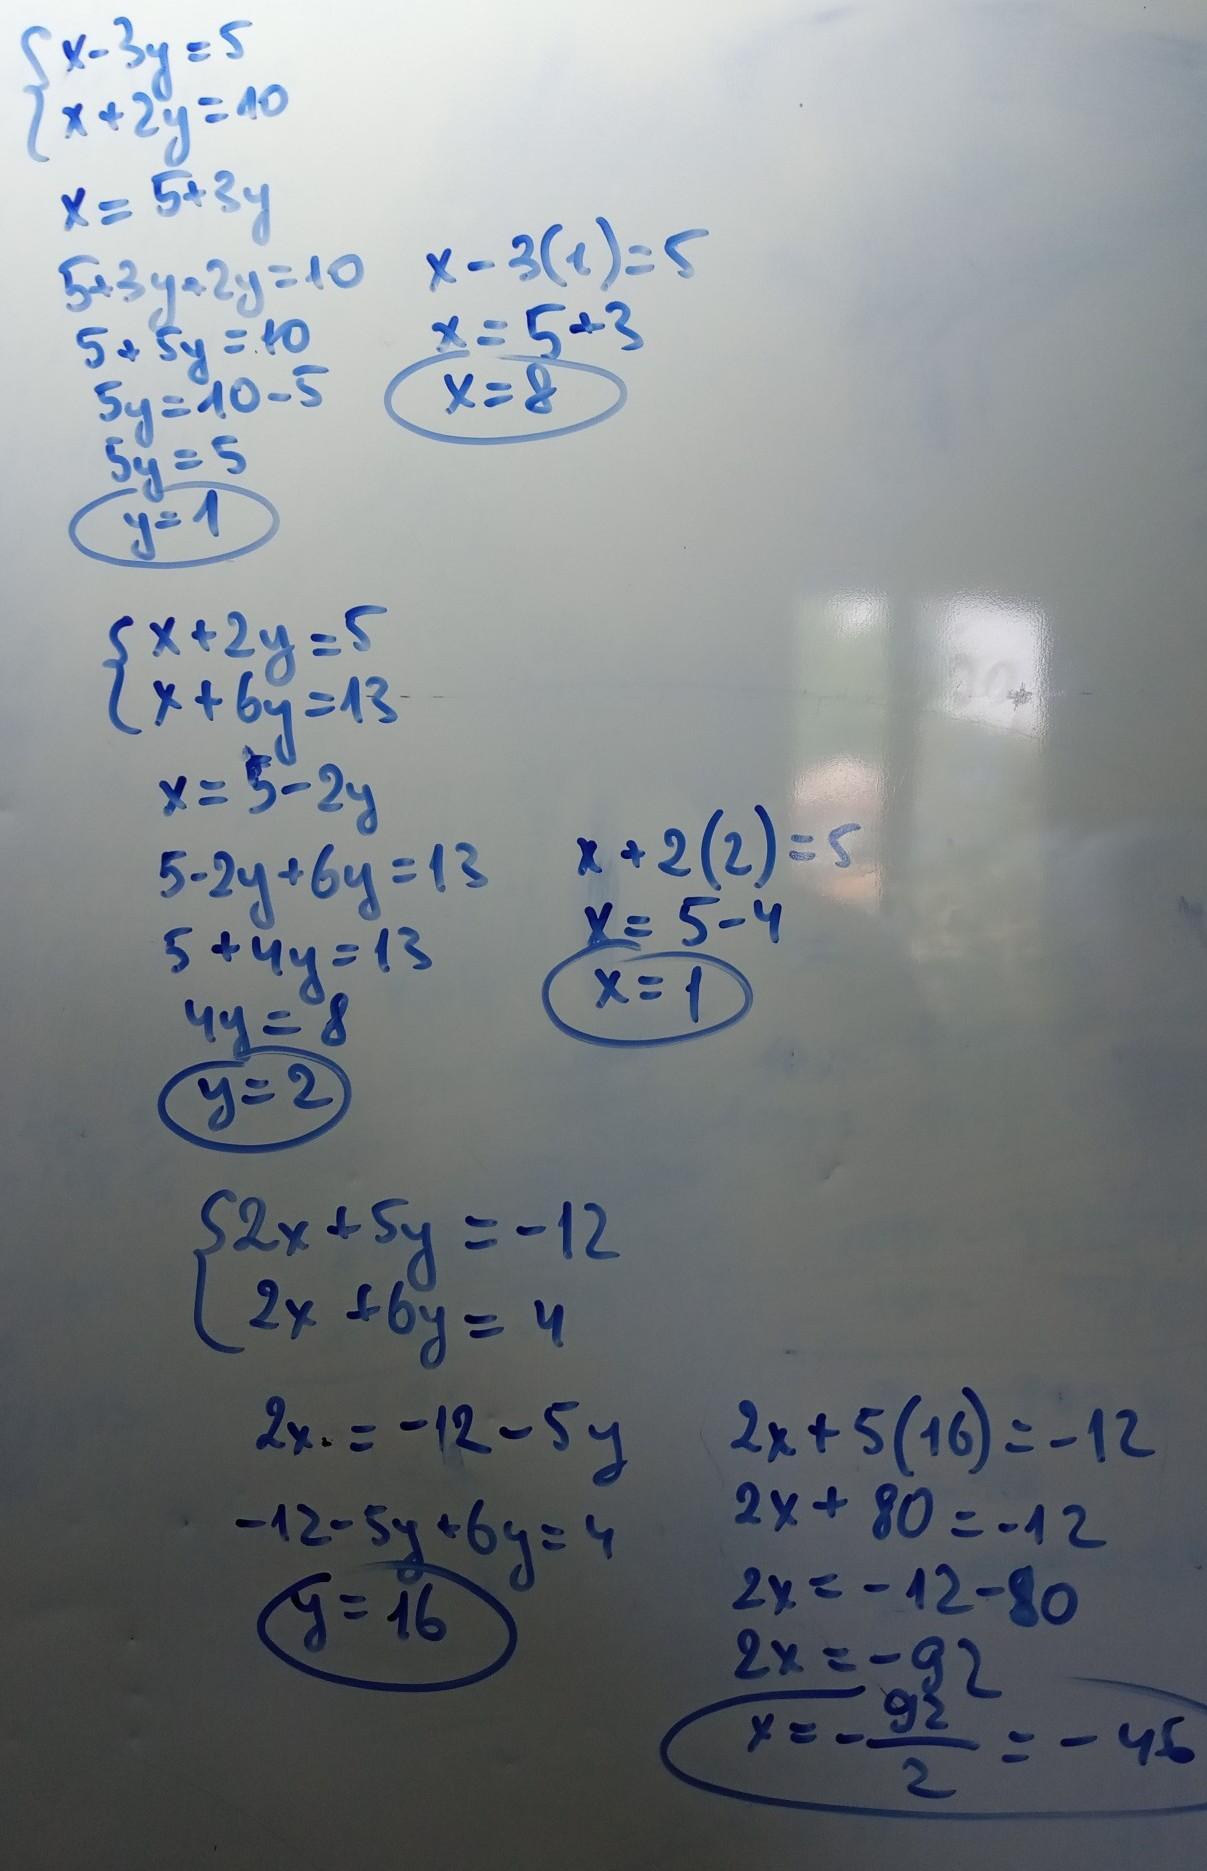 x-3y=5
x+2y=10
x=5+3y
5+3y+2y=10
5+5y=10
5y=10-5
5y=5
y=1
x-3(1)=5
x=5+3
x=8
x+2y=5
x+6y=13
x=5-2y
5-2y+6y=13
5+4y=13
4y=8
y=2
x+2(2)=5
x=5-4
x=1
2x+5y=-12
2x+6y=4
2x=-12-5y
-12-5y+6y=4
y=16
2x+5(16)=-12
2x+80=-12
2x=-12-80
2x=-92
x=-92/2=-46